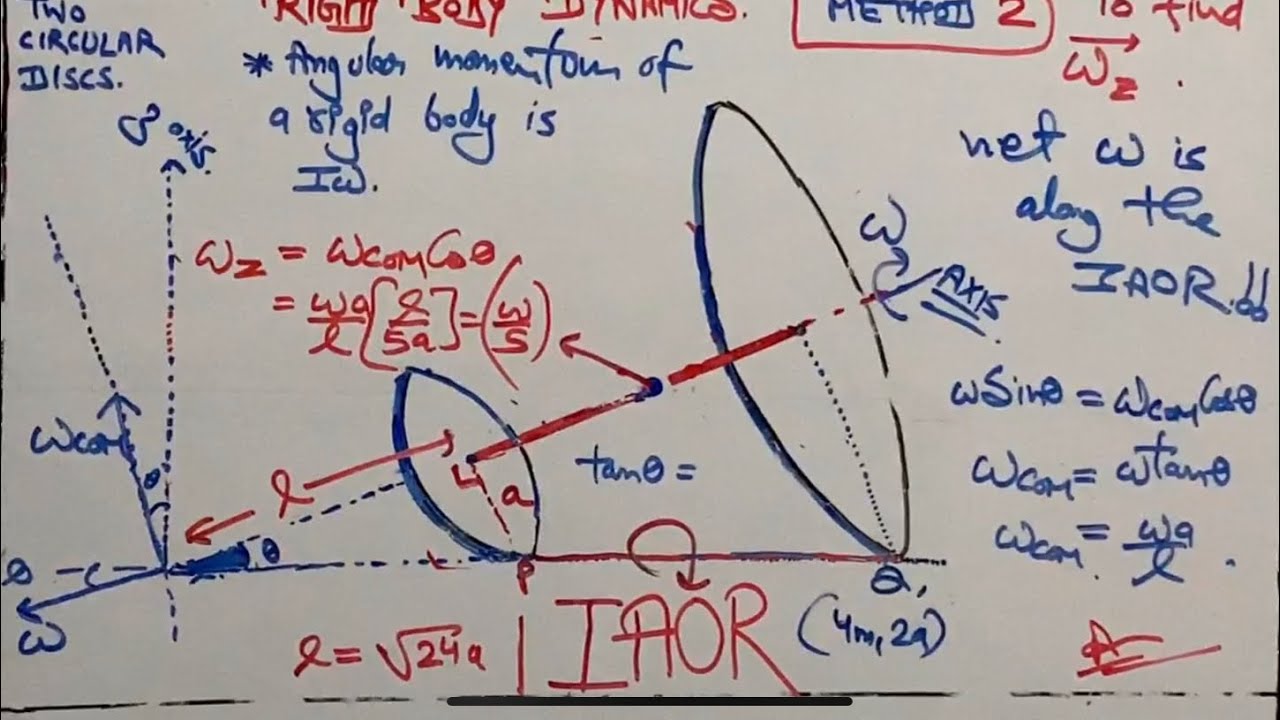 TWO
CIRCULAR
DISCS.
RIGID BODY DYNAMICS.
METHOD 2
To find
ω⃗z.
* Angular momentum of
a rigid body is
Iω.
axis.
net ω is
along the
IAOR!!
ωz = ωcom Cosθ
= ωa/l [l/5a] = (ω/5)
ω
AXIS
ωSinθ = ωcom Cosθ
ωcom = ωtanθ
ωcom = ωa/l.
ωcom
θ
l
a
tanθ =
θ
ω
P
Q,
l = √24a
IAOR
(4m, 2a)